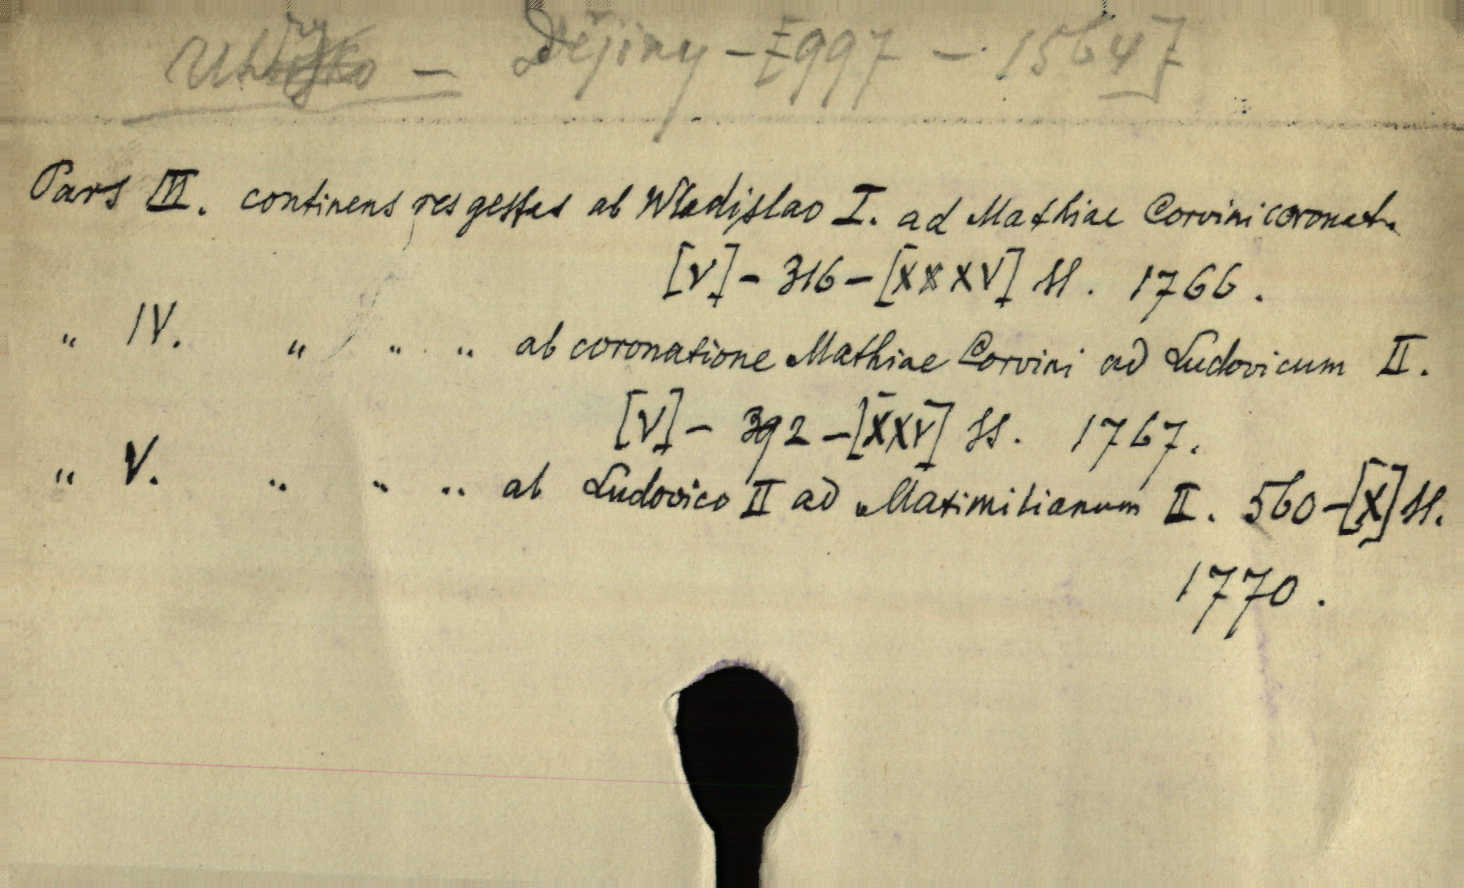 Uhry - Dějiny - [997 - 1564]
Pars III. continens res gestas ab Wladislao I. ad Mathiae Corvini coronat.
[V] - 316 - [XXXV] ss. 1766.
" IV. " " " ab coronatione Mathiae Corvini ad Ludovicum II.
[V] - 392 - [XXV] ss. 1767.
" V. " " " ab Ludovico II ad Maximilianum II. 560 - [X] ss.
1770.